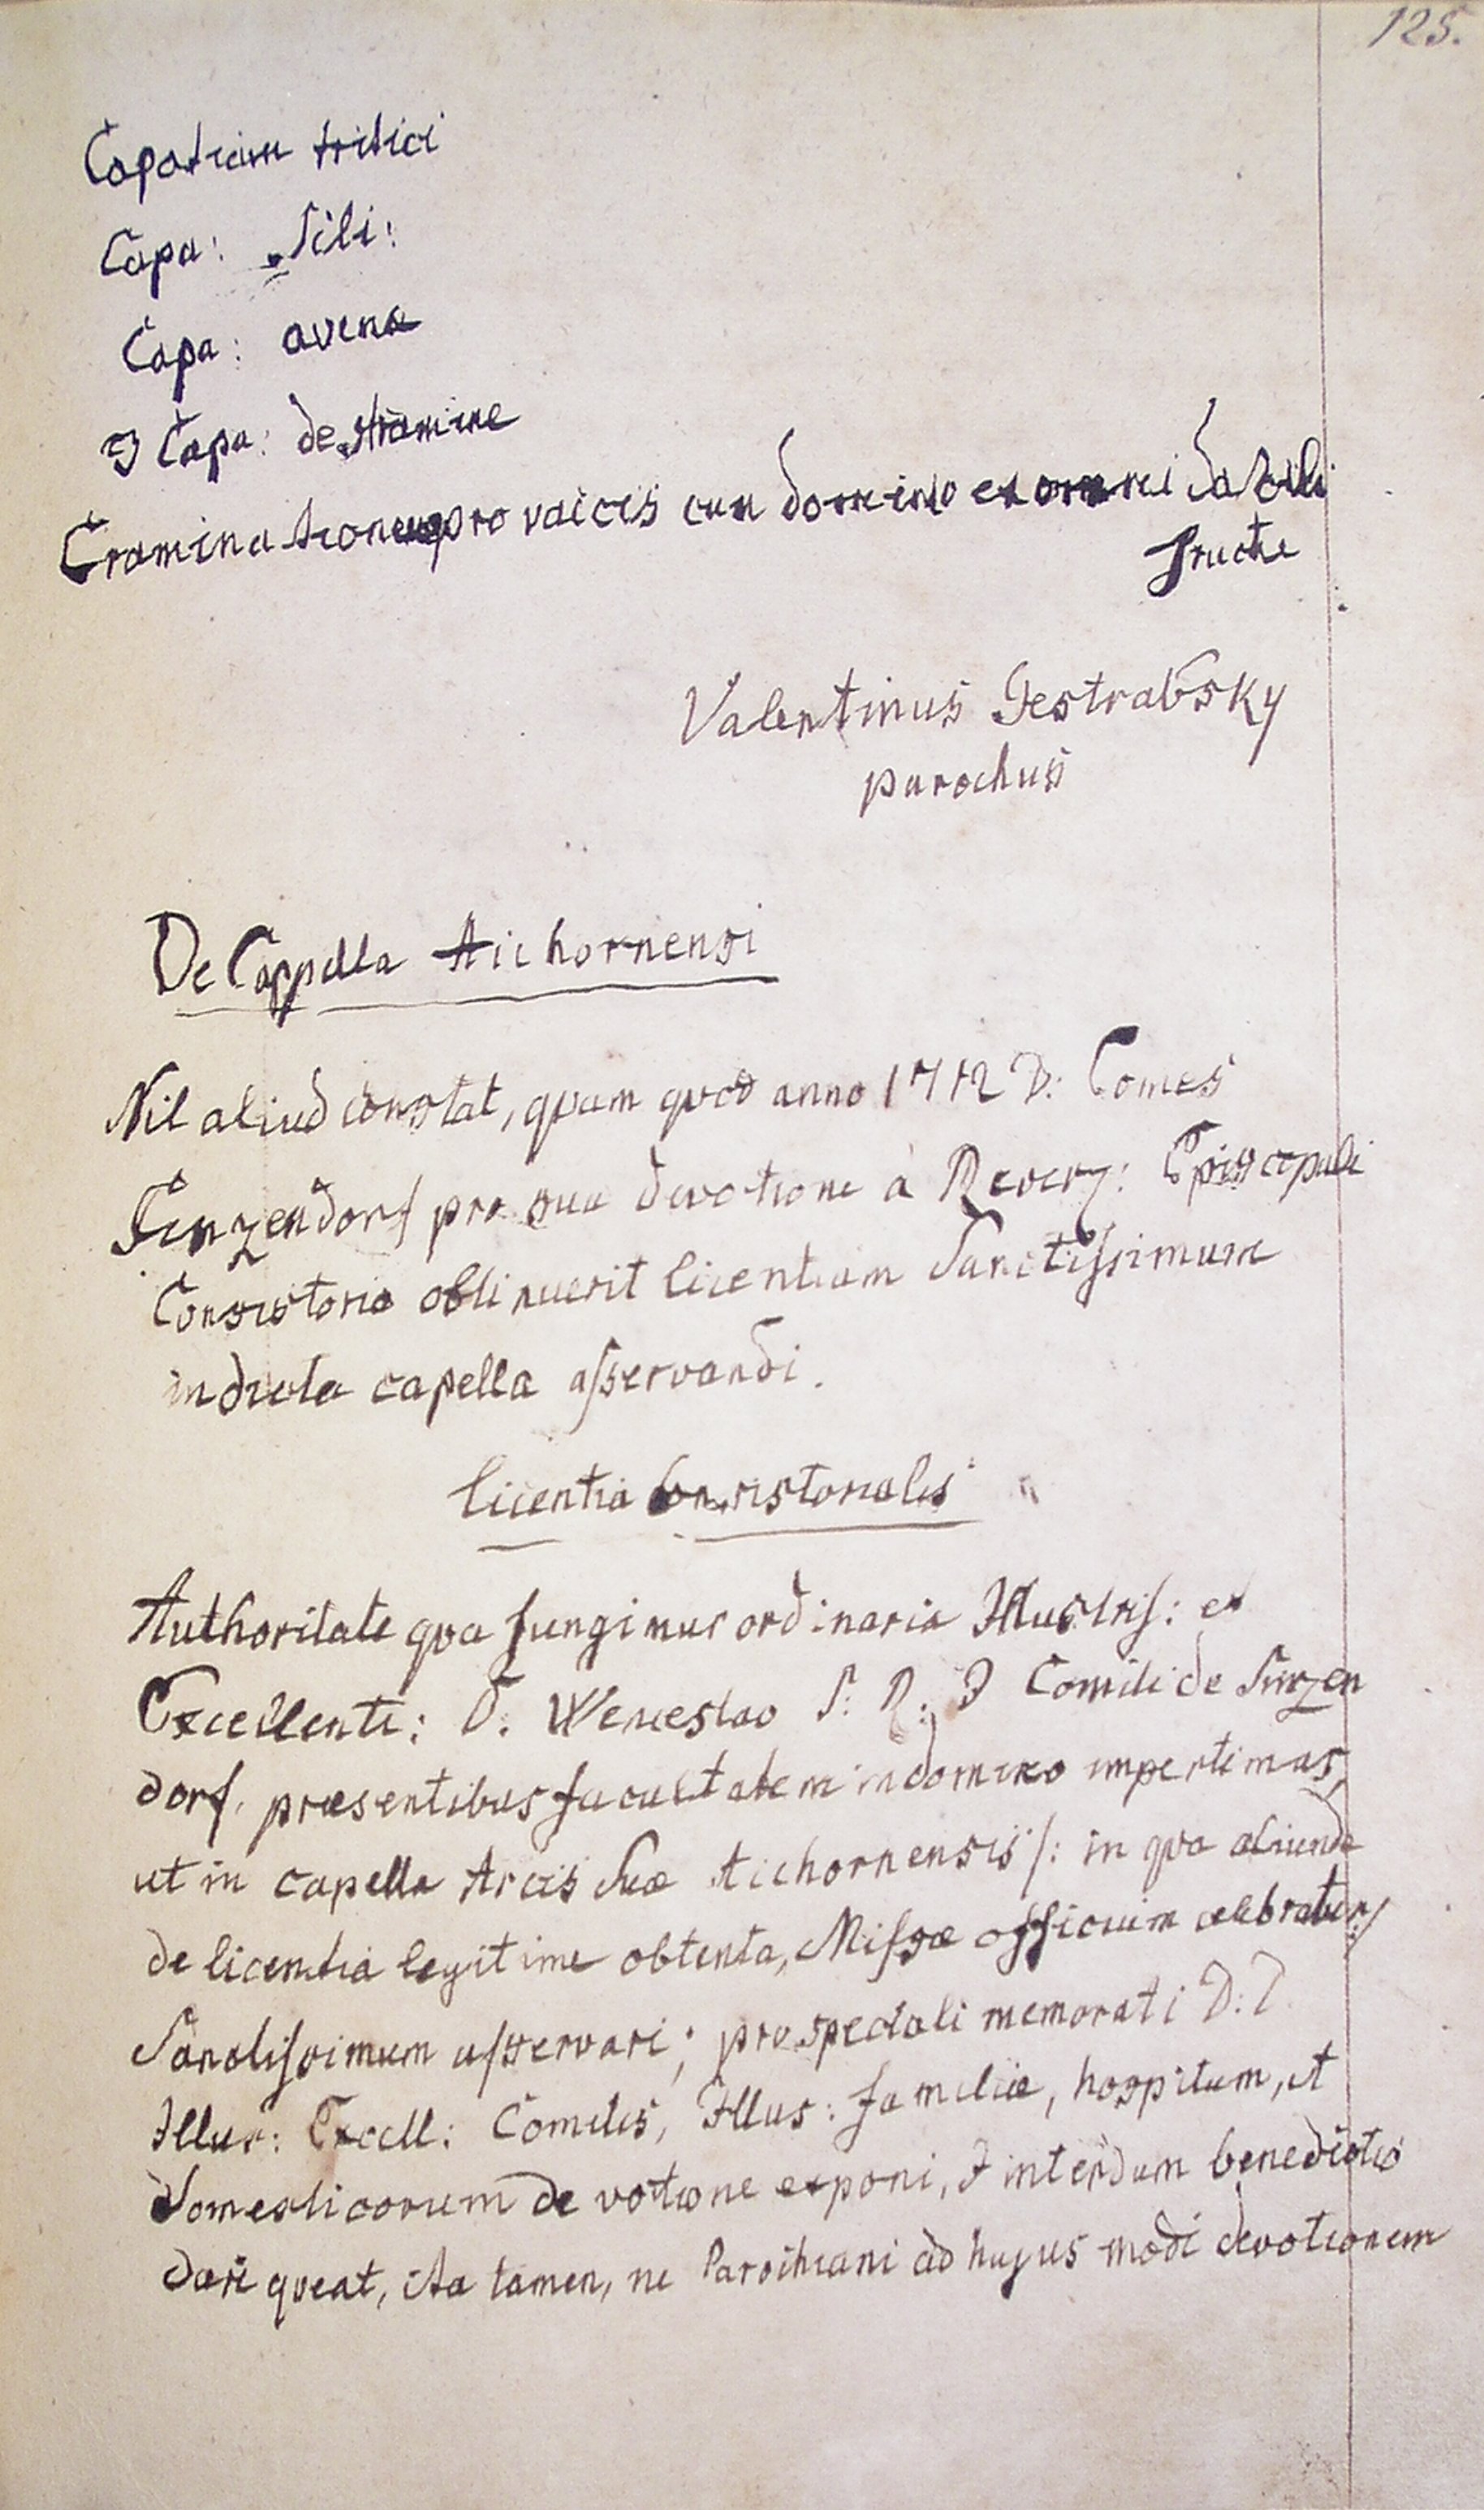 125.
Capatiam tritici
Capa: Sili:
Capa: avena
3 Capa: de stramine
pro vaicis cum domino ex omni
fructu
Valentinus Jestrabsky
parochus
De Cappella Aichornensi
Nil aliud constat, quam quod anno 1712 D: Comes
Sinzendorf pro sua devotione à Rever: Episcopali
Consistorio obtinuerit licentiam Sanctissimum
in dicta capella asservandi.
Licentia Consistorialis
Authoritate qva fungimur ordinaria Illustris: et
Excellenti: D. Wenceslao S: R: I Comiti de Sinzen
dorf, praesentibus facultatem in domino impertimas,
ut in capella Arcis Suae Aichornensis /: in qva aliunde
de licentia legitime obtenta, Missae officium celebratur :/
Sanctissimum asservari; pro speciali memorati D: D
Illus: Excell: Comitis, Illus: familiae, hospitum, et
domesticorum devotione exponi, & interdum benedictio
dari qveat, ita tamen, ne Parochiani ad hujus modi devotionem